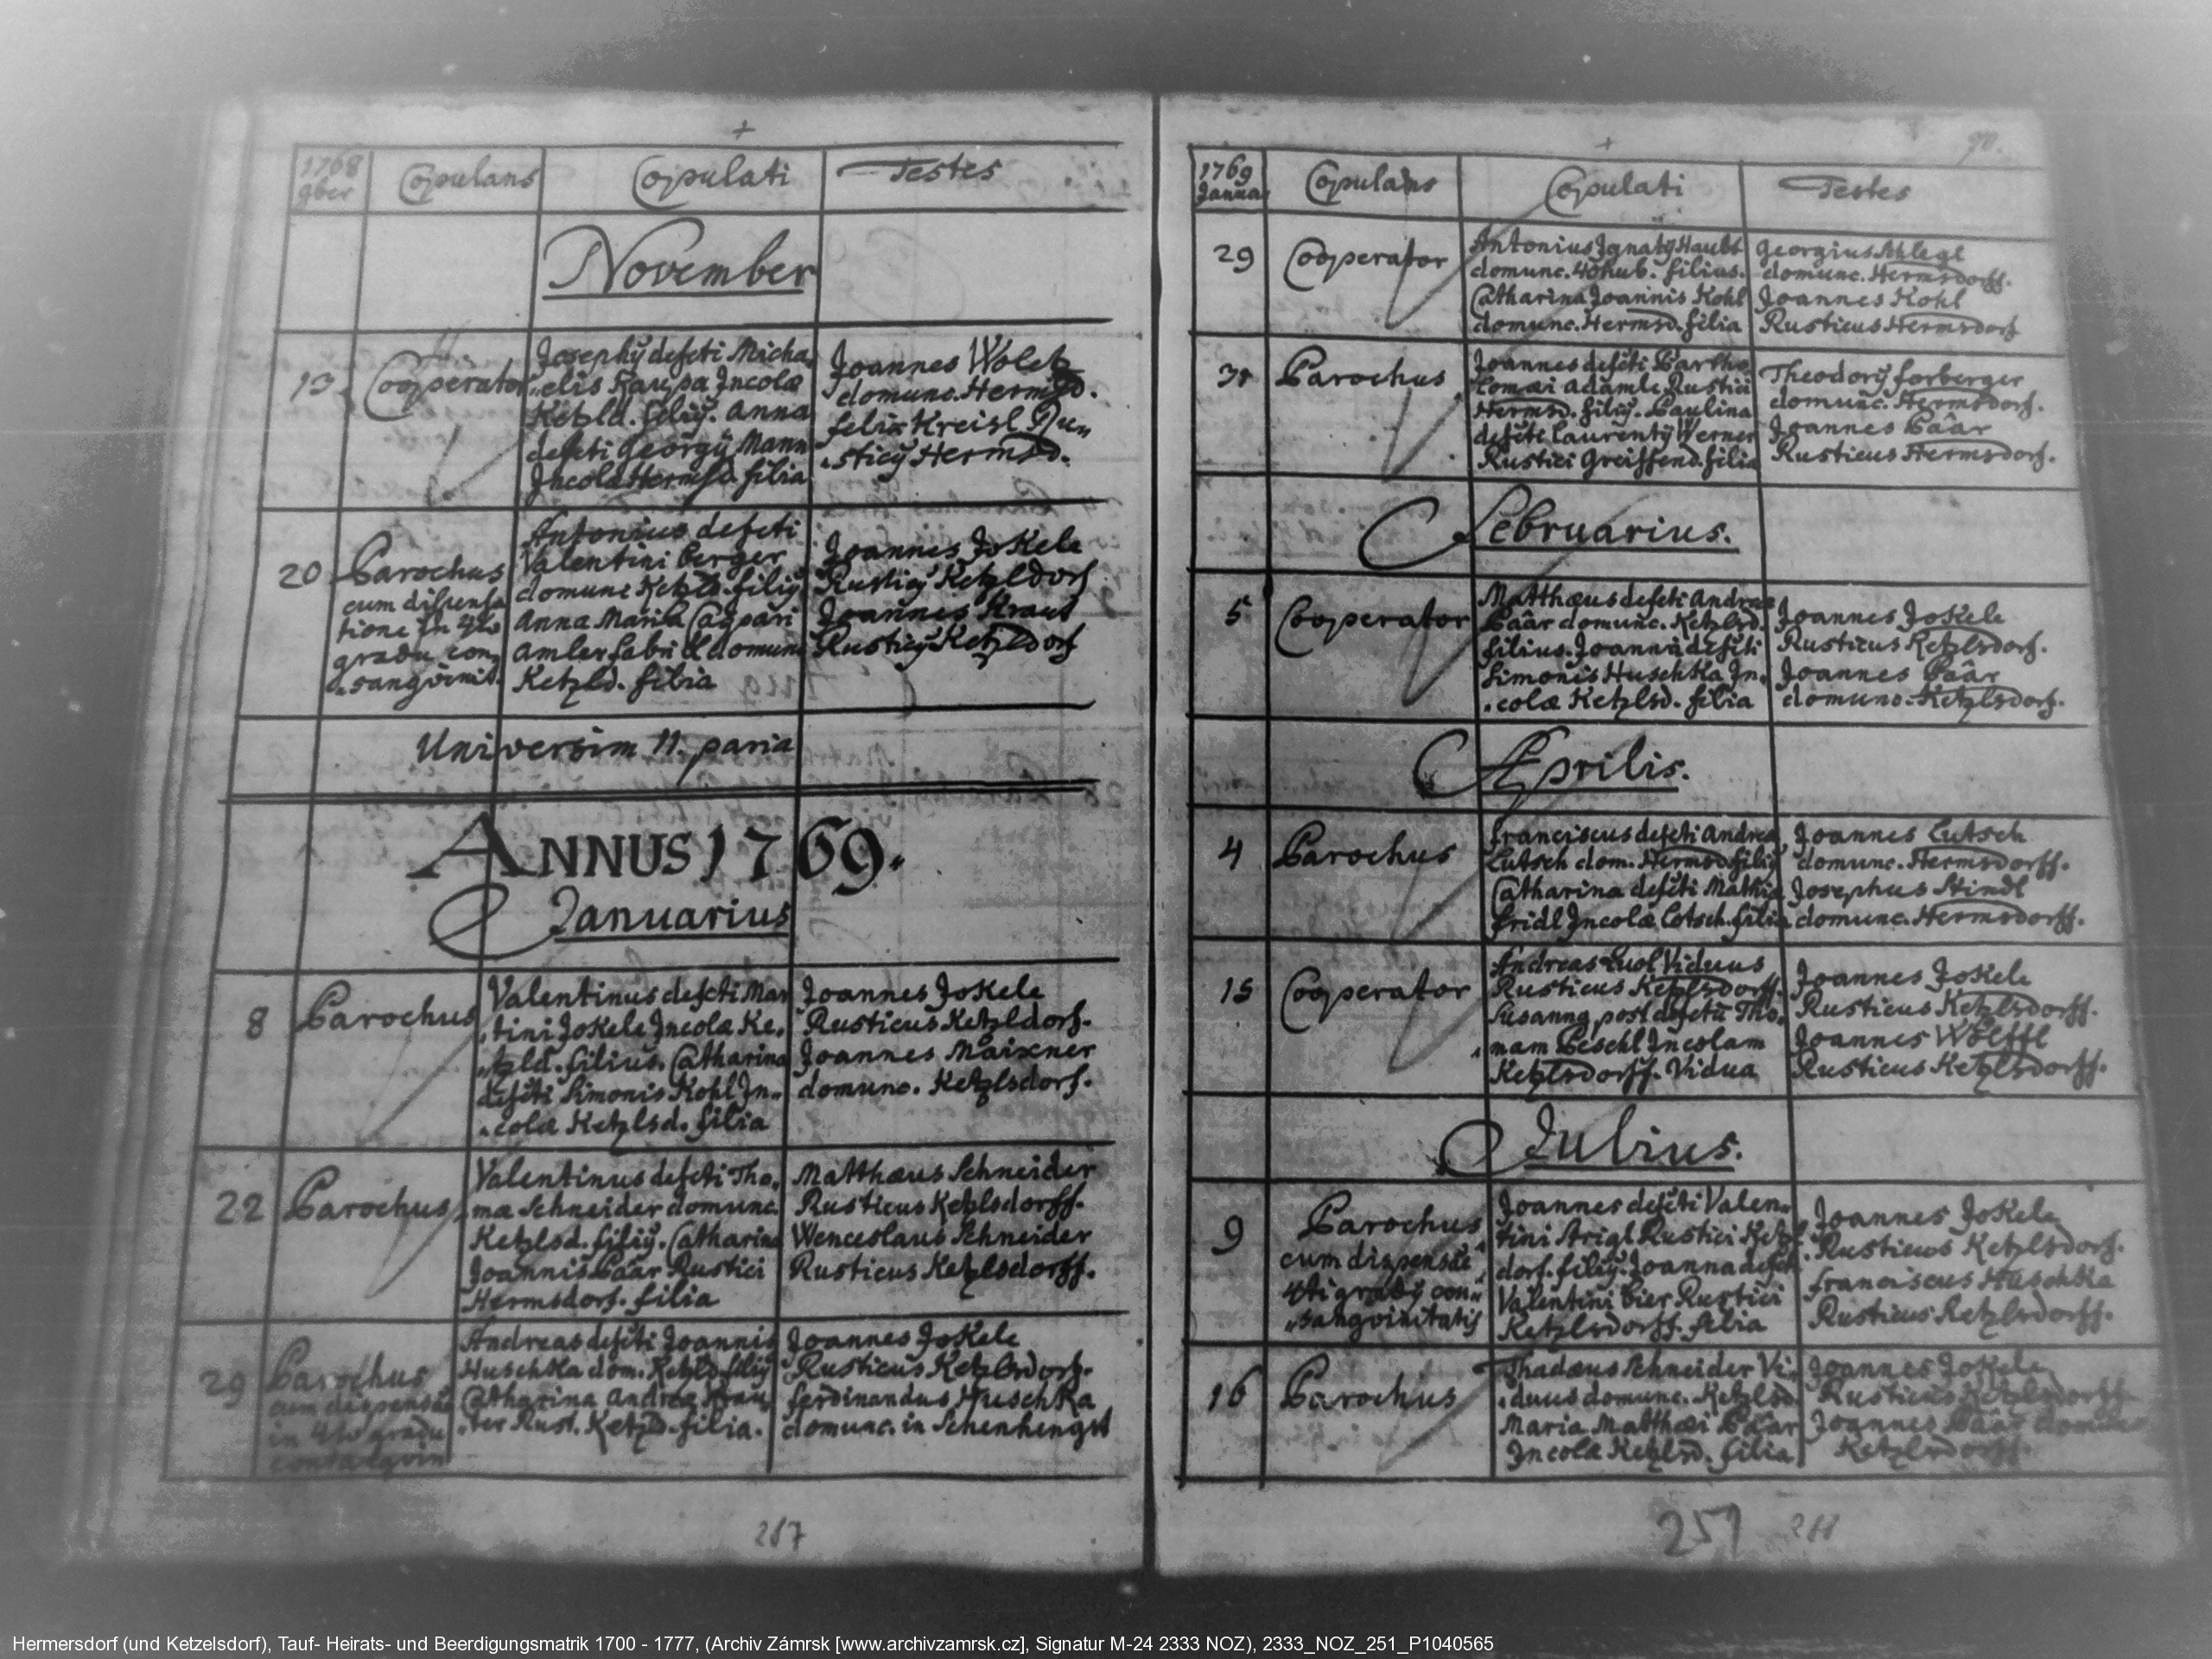 1768
9ber
Copulans
Copulati
Testes
November
13.
Cooperator
Josephÿ defcti Micha,
,,elis Kaupa Incolæ
Ketzld. filiÿ. Anna
defcti Georgÿ Mann
Incolæ Hermsd. filia
Joannes Wolck
domunc. Hermsd.
Felix Kreisl Ru,,
,,sticÿ Hermsd.
20
Parochus
cum dispensa
tione in 4to
gradu con,
,,sangvinit.
Antonius defcti
Valentini Berger
domunc Ketzld. filiÿ
Anna Maria Caspari
Amler fabri & domunc
Ketzld. filia
Joannes Jokele
Rusticÿ Ketzldorf
Joannes Kraut
Rusticÿ Ketzldorf
Universim 11. paria
ANNUS 1769.
Januarius
8
Parochus
Valentinus defcti Mar
,,tini Jokele Incolæ Ke,
,,tzld. filius. Catharina
defcti Simonis Kohl In,,
,,colæ Ketzlsd. filia
Joannes Jokele
Rusticus Ketzldorf.
Joannes Maixner
domunc. Ketzlsdorf.
22
Parochus
Valentinus defcti Tho,
mæ Schneider domunc.
Ketzlsd. filiÿ. Catharina
Joannis Baar Rustici
Hermsdorf. filia
Matthæus Schneider
Rusticus Ketzlsdorff.
Wenceslaus Schneider
Rusticus Ketzlsdorff.
29
Parochus
cum dispensa
in 4to gradu
consangvin
Andreas defcti Joannis
Huschka dom. Ketzld. filiÿ
Catharina Andreæ Krau,
,,ter Rust. Ketzld. filia.
Joannes Jokele
Rusticus Ketzlsdorf.
Ferdinandus Huschka
domunc. in Schenhengst
287
1769
Janua
Copulans
Copulati
Testes
29
Cooperator
Antonius Ignatÿ Haubt
domunc. filius.
Catharina Joannis Kohl
domunc. Hermsd. filia
Georgius Schlegl
domunc. Hermsdorff.
Joannes Kohl
Rusticus Hermsdorf
31
Parochus
Joannes defcti Bartho
lomæi Adamle Rustici
Hermsd. filiÿ. Paulina
defcti Laurentÿ Werner
Rustici Greiffend. filia
Theodorÿ Forberger
domunc. Hermsdorf.
Joannes Báár
Rusticus Hermsdorf.
Februarius.
5
Cooperator
Matthæus defcti Andreæ
Báár domunc. Ketzlsd.
filius. Joanna defcti
Simonis Huschka In,
,,colæ Ketzlsd. filia
Joannes Jokele
Rusticus Ketzlsdorf.
Joannes Báár
domunc. Ketzlsdorf.
Aprilis.
4
Parochus
Franciscus defcti Andreæ
Lutsch dom. Hermsd. filiÿ
Catharina defcti Mathiæ
Fridl Incolæ Lotsch. filia
Joannes Lutsch
domunc. Hermsdorff.
Josephus Stindl
domunc. Hermsdorff.
15
Cooperator
Andreas Luol Viduus
Rusticus Ketzlsdorff.
Susanna post defctū Tho,
,,mam Peschl Incolam
Ketzlsdorff. Vidua
Joannes Jokele
Rusticus Ketzlsdorff.
Joannes Wölffl
Rusticus Ketzlsdorff.
Julius.
9
Parochus
cum dispensãe
4ti gradÿ con,,
,,sangvinitatis
Joannes defcti Valen,,
tini Arigl Rustici Ketzl
dorf. filiÿ. Joanna defct
Valentini Bier Rustici
Ketzlsdorff. filia
Joannes Jokele
Rusticus Ketzlsdorf.
Franciscus Huschka
Rusticus Ketzlsdorff.
16
Parochus
Thadæus Schneider Vi,
,,duus domunc. Ketzlsd.
Maria Matthæi Báár
Incolæ Ketzlsd. filia
Joannes Jokele
Rusticus Ketzlsdorff
Joannes Báár domunc
Ketzlsdorff.
251
288
Hermersdorf (und Ketzelsdorf), Tauf- Heirats- und Beerdigungsmatrik 1700 - 1777, (Archiv Zámrsk [www.archivzamrsk.cz], Signatur M-24 2333 NOZ), 2333_NOZ_251_P1040565